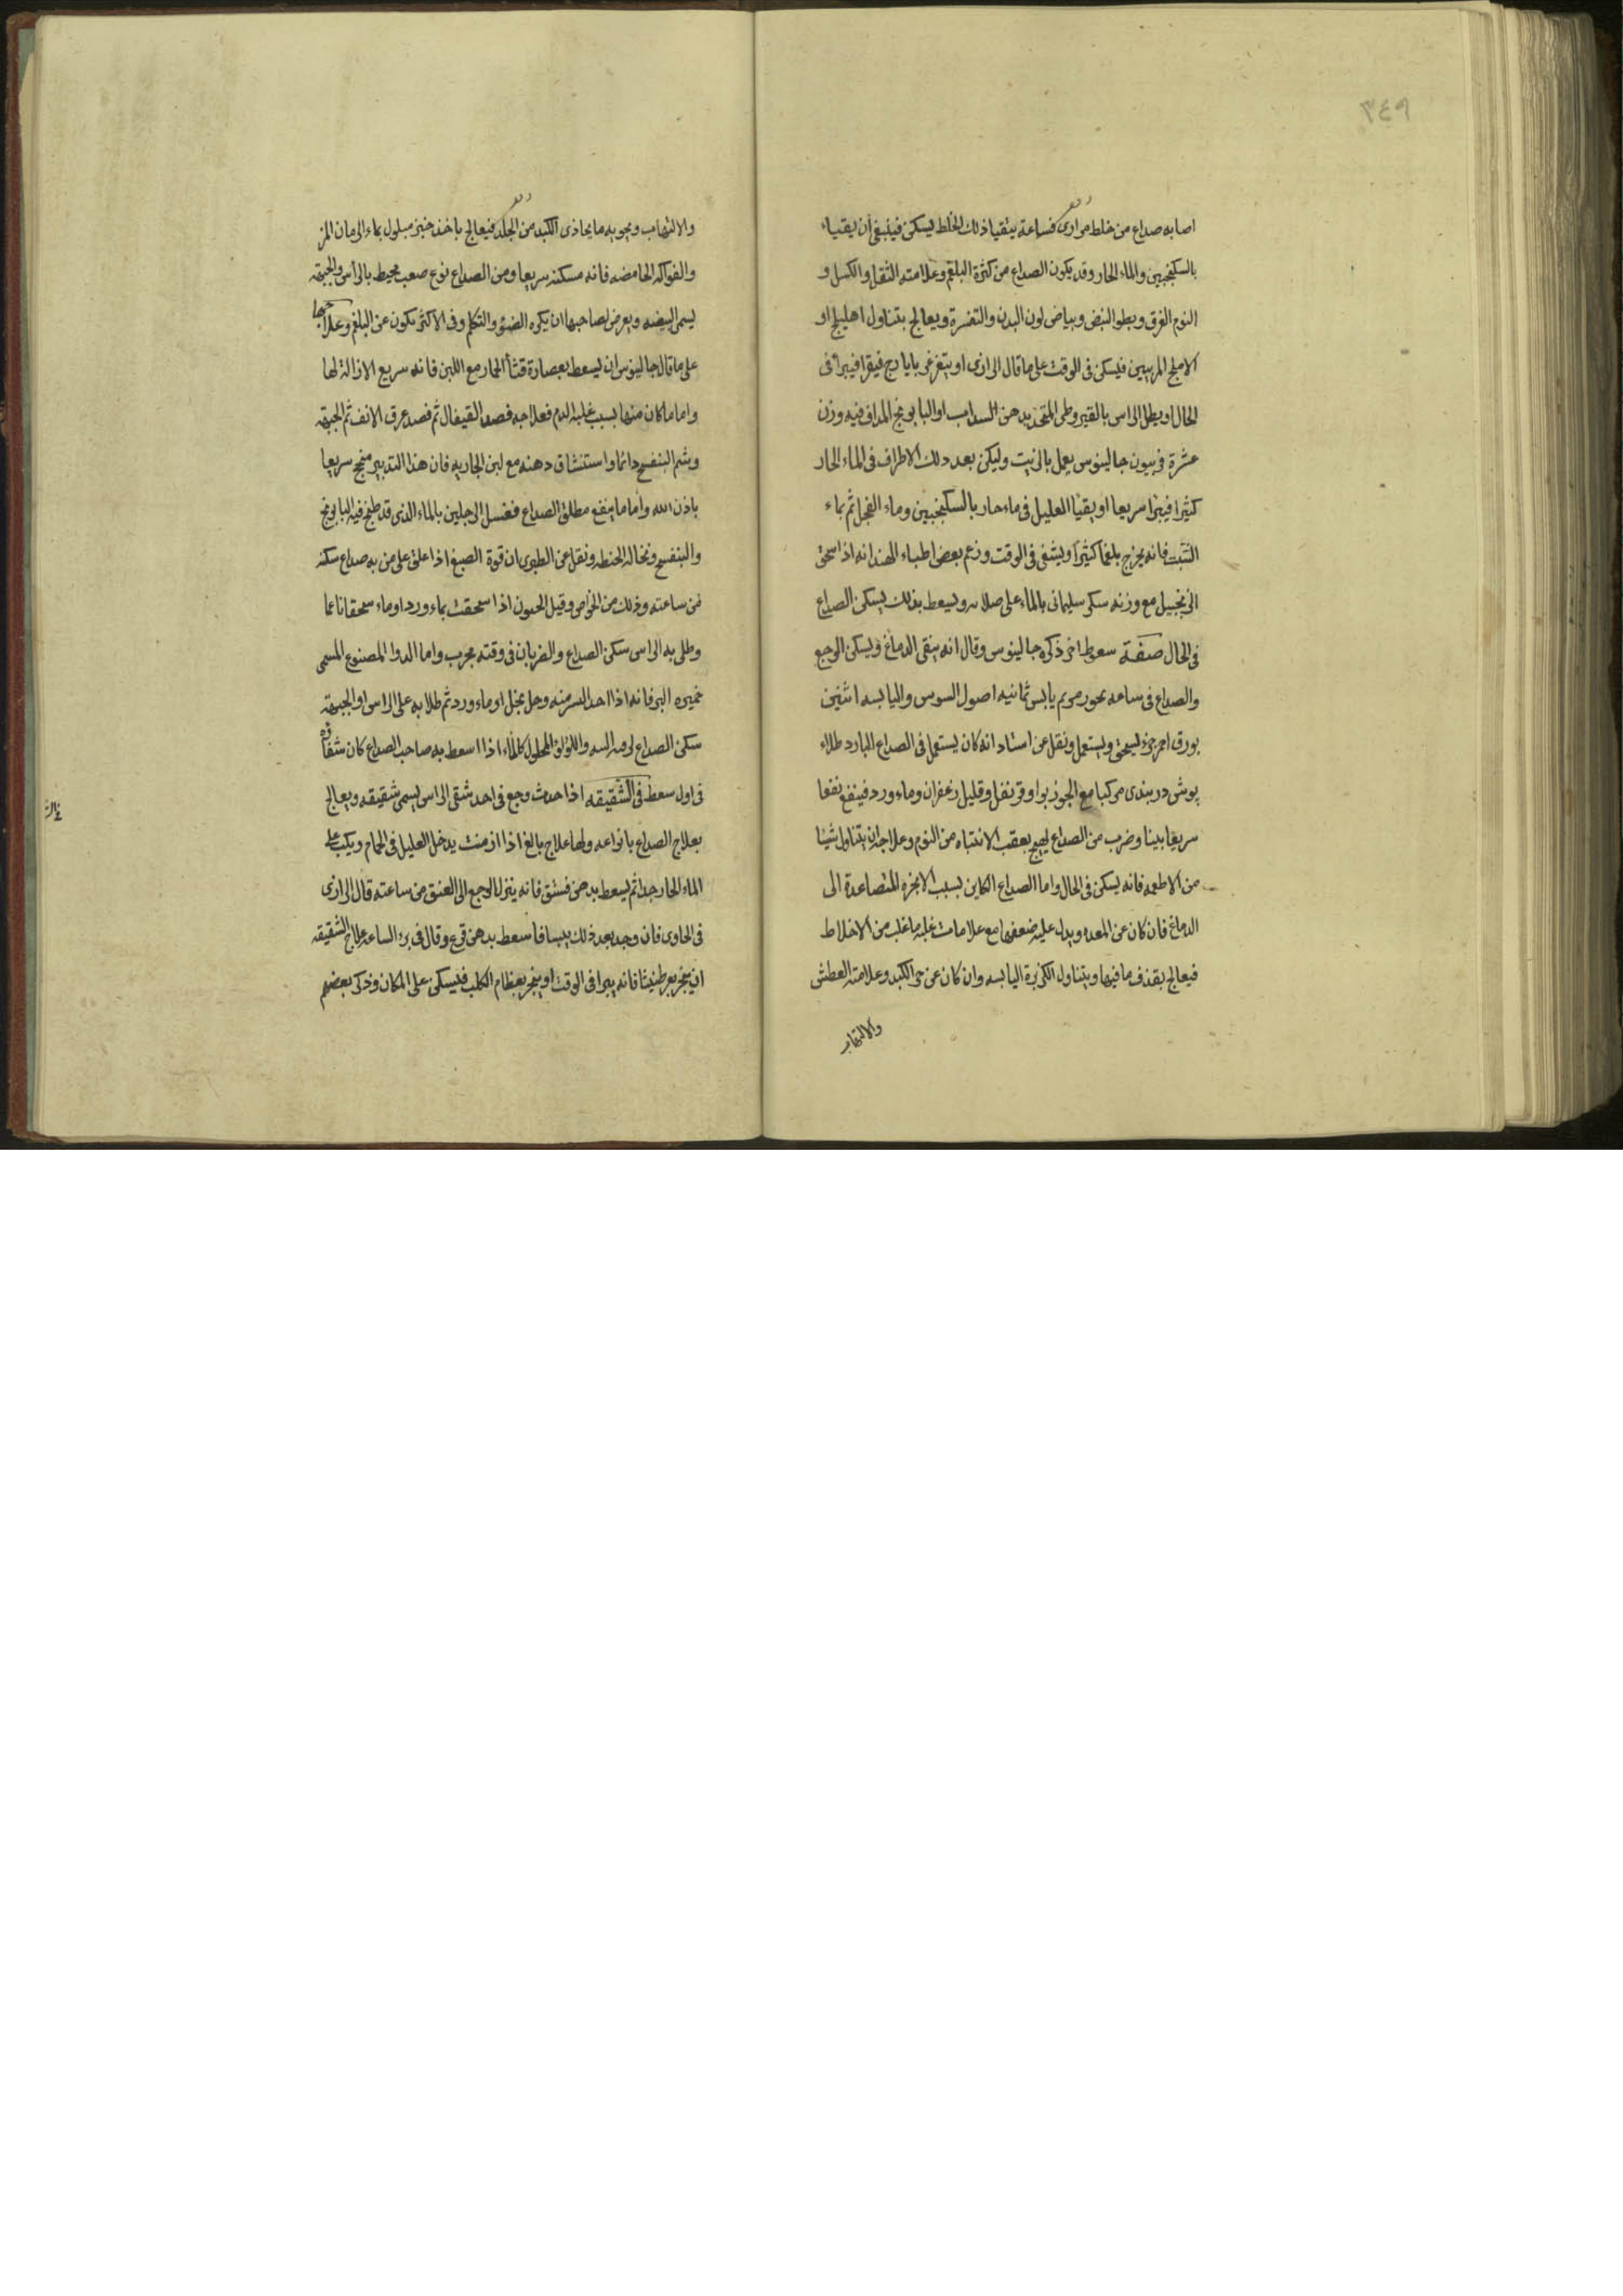 ٣٤٩
اصابه صداع من خلط مراری فساعة يتقيا ذلك الخلط يسكن فينبغی أن يقتياء
بالسكنجبين والماء الحار وقد يكون الصداع من كثرة البلغم وعلامته الثقل والكسل و
النوم الغرق وبطو النبض وبياض لون البدن والتفسرة ويعالج بتناول اهليلج او
الاملج المربيين فيسكن فی الوقت علی ما قال الرازی او يتغرغر بايارج فيقرا فيبرأ فی
الحال او يطلی الراس بالقيروطی المتخذ بدهن السداب او البابونج المداف فيه وزن
عشرة فربيون جالينوس يعمل بالزيت وليكن بعد دلك الاطراف فی الماء الحار
كثيرا فيبرا سريعا او يقيا العليل فی ماء حار بالسكنجبين وماء الفجل ثم بماء
الشبت فانه يخرج بلغما كثيرا ويشفی فی الوقت وزعم بعض اطباء الهند انه اذا سحق
الزنجبيل مع وزنه سكر سليمانی بالماء علی صلايه وليسعط بذلك يسكن الصداع
فی الحال صفة سعوط اخر ذكره جالينوس وقال انه ينقی الدماغ ويسكن الوجع
والصداع فی ساعه بخور مريم يابس ثمانيه اصول السوس واليابسه اثنين
بورق احمر جزء ليسحق ويستعمل ونقل عن استاد انه كان يستعمل فی الصداع البارد طلاء
بوشی دربندی مركبا مع الجوز بوا وقرنفل وقليل زعفران وماء ورد فينفع نفعا
سريعا بينا وضرب من الصداع يهيج بعقب الانتباه من النوم وعلاجه ان يتناول شيا
من الاطعمه فانه يسكن فی الحال واما الصداع الكاين بسبب الابخره المتصاعدة الی
الدماغ فان كان عن المعده ويدل عليه ضعفها مع علامات غلبه ما غلب من الاخلاط
فيعالج بقذف ما فيها ويتناول الكزبرة اليابسه وان كان عن حر الكبد وعلامته العطش
والالتهاب
والالتهاب ويجوبه ما يحاذی الكبد من الجلد فيعالج باخذ خبز مبلول بماء الرمان المز
والفواكه الحامضه فانه مسكنه سريعا ومن الصداع نوع صعب محيط بالرأس والجبهة
ليسمی البيضه ويعرض لصاحبها ان يكره الضوء والتكلم وفی الاكثر تكون عن البلغم وعلاجها
علی ما قال جالينوس ان ليسعط بعصارة قثأ الحمار مع اللبن فانه سريع الازالة لها
واما ما كان منها بسبب غلبه الدم فعلاجه فصد القيفال ثم فصد عرق الانف ثم الجبهة
وشم البنفسج دائما واستنشاق دهنه مع لبن الجاريه فان هذا التدبير منجح سريعا
باذن الله واما ما ينفع مطلق الصداع فغسل الرجلين بالماء الذی قد طبخ فيه البابونج
والبنفسج ونخاله الحنطه ونقل عن الطبری ان قوة الصبغ اذا علق علی من به صداع سكنه
من ساعته وذلك من الخواص وقيل اذا سحقت بماء ورد او ماء سحقا ناعما
وطلی به الراس سكن الصداع والضربان فی وقته مجرب واما الدوا المصنوع المسمی
خميره البر فانه اذا منه وحل بخل او ماء ورد ثم طلا به علی الراس او الجبهة
سكن الصداع واللؤلؤ المحلول كالماء اذا اسعط به صاحب الصداع كان شفاؤه
فی اول سعط فی الشقيقه اذا حدث وجع فی احد شقی الراس ليسمی شقيقه ويعالج
بعلاج الصداع بانواعه ولها علاج بالغ اذا ازمنت يدخل العليل فی الحمام ويكب علی
الماء الحار جدا ثم ليسعط بدهن فستق فانه ينزل الوجع الی العنق من ساعته قال الرازی
فی الحاوی فان وجد بعد ذلك يبسا فاسعط بدهن قرع وقال فی برء الساعه علاج الشقيقه
ان يبخر بعرطنيثا فانه يبرا فی الوقت او يبخر بعظام الكلب فليسكن علی المكان وذكر بعضهم